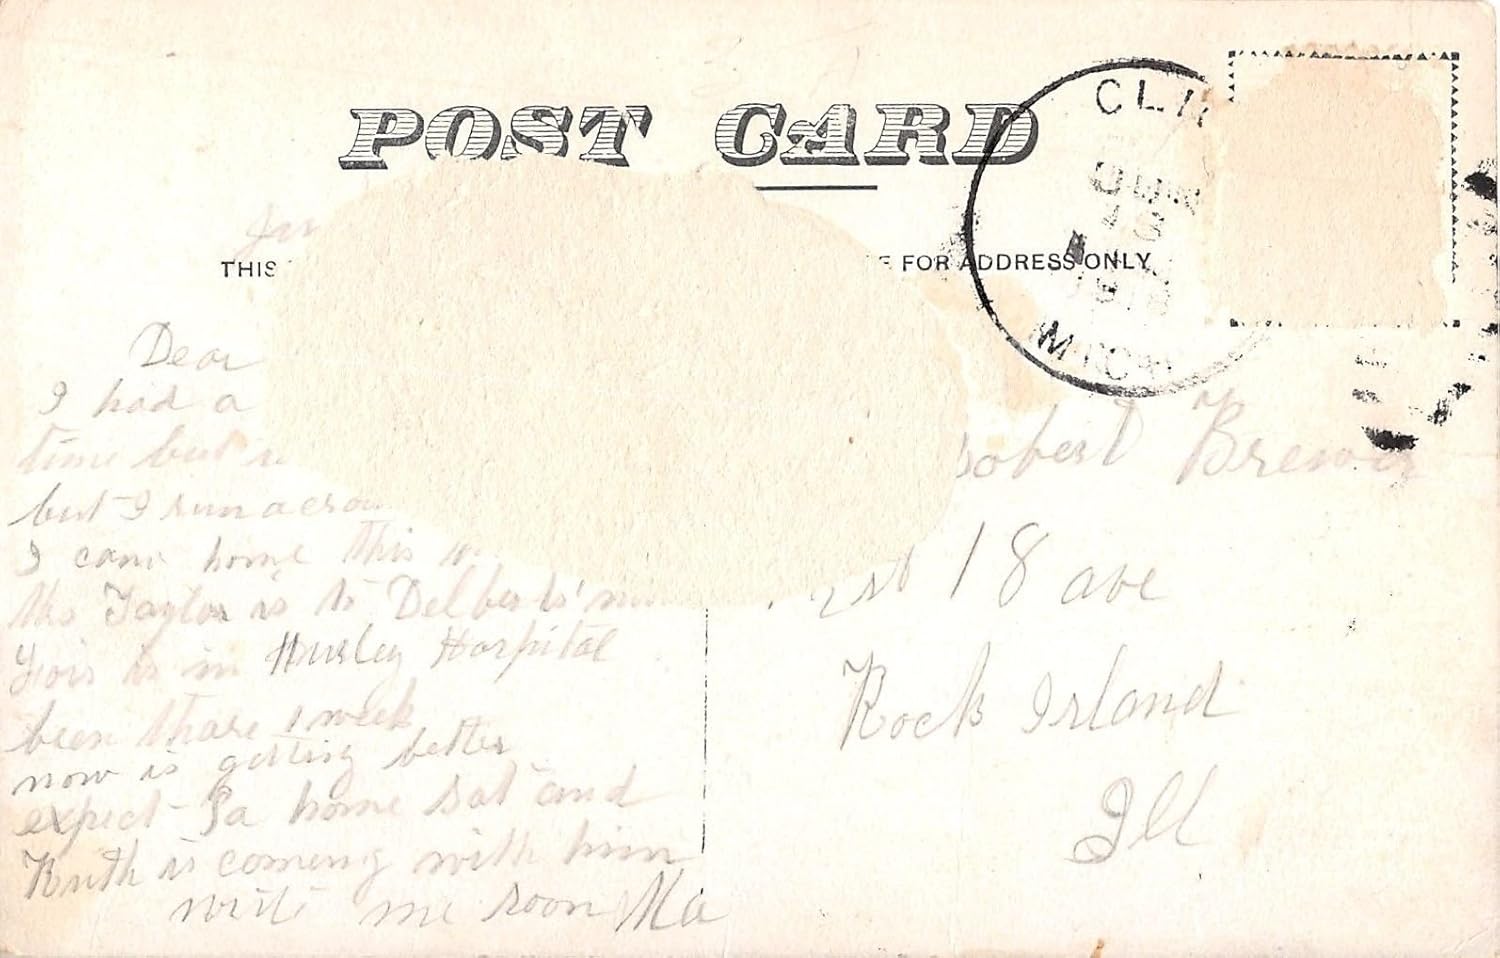 POST CARD
CLI
JUN
18
THIS
FOR ADDRESS ONLY
MICH
Dear
I had a
time but
but I run
I cam home this
Taylor is to
is in Hurley Hospital
been thare 1 week
now is getting better
expect Pa home Sat and
Ruth is comeing with him
write me soon Ma
obert Brewer
1st 18 ave
Rock Island
Ill